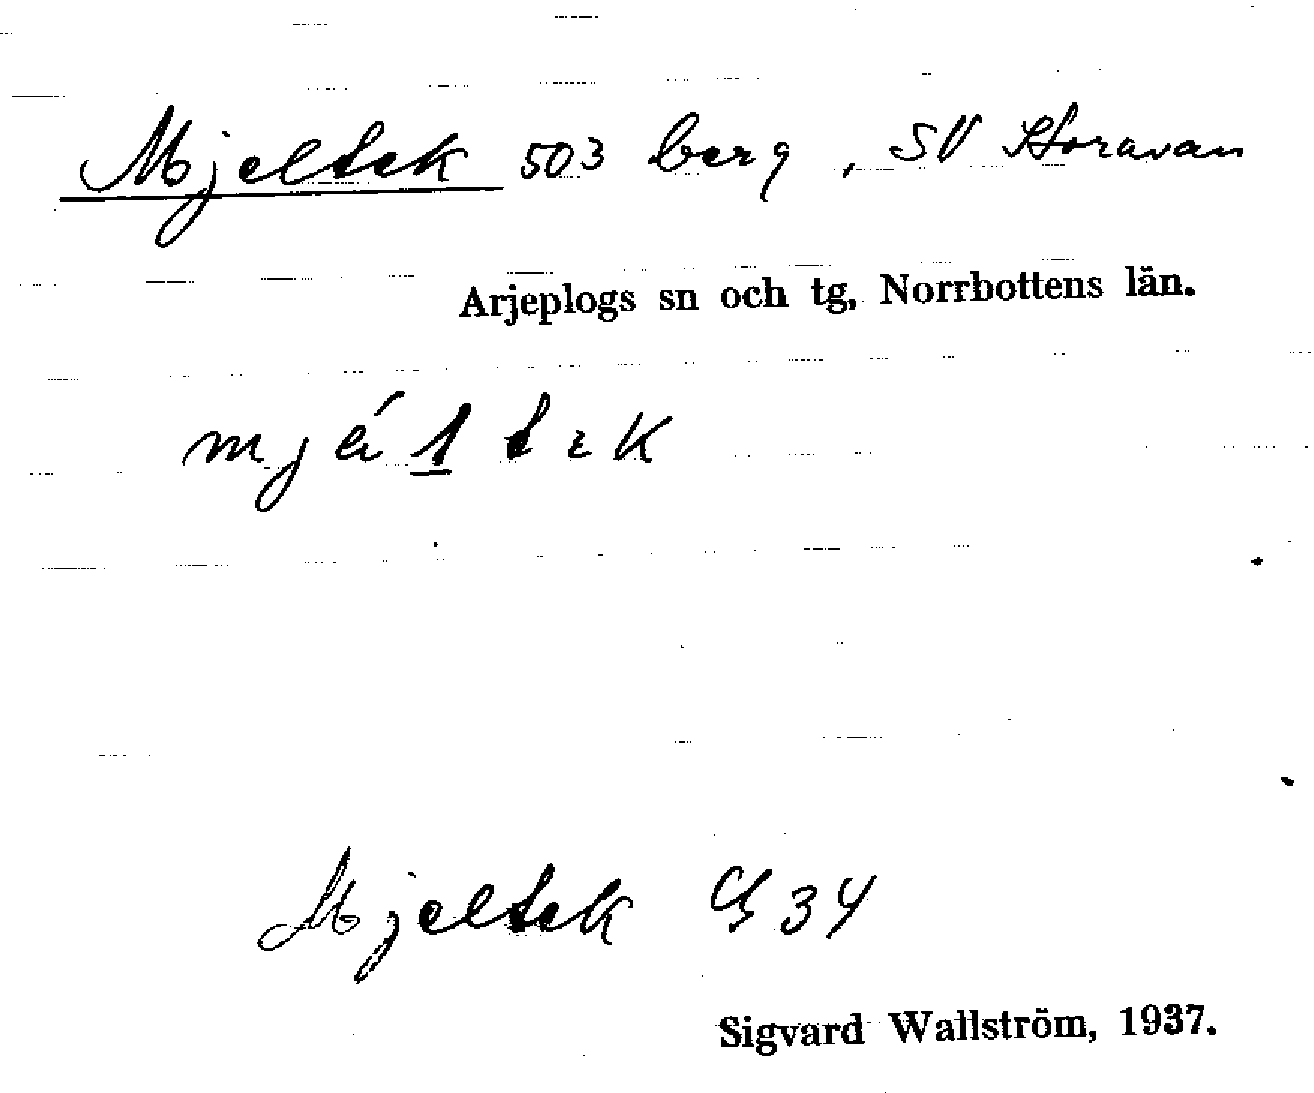 Mjeltek 503 berg, SV Horavan
Arjeplogs sn och tg, Norrbottens län.
Mjeltek 34
Sigvard Wallström, 1937.